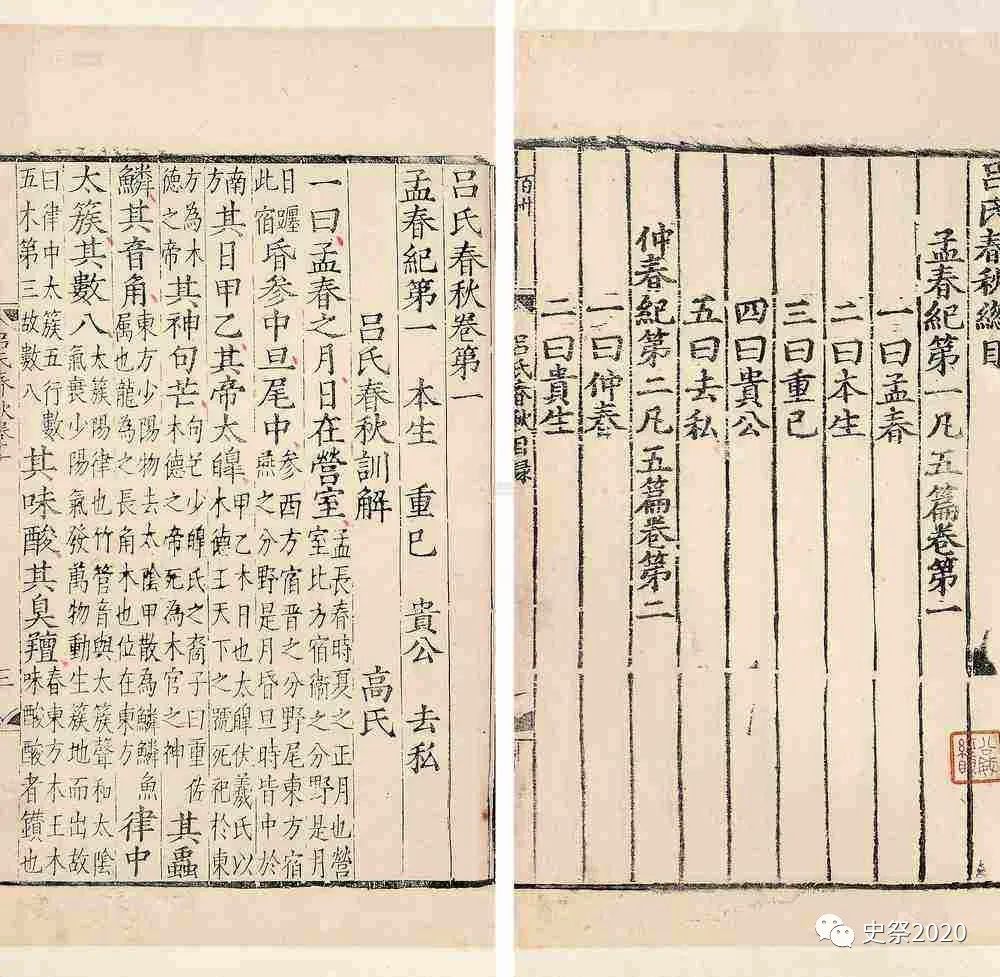 呂氏春秋總目
孟春紀第一凡五篇卷第一
一曰孟春
二曰本生
三曰重已
四曰貴公
五曰去私
仲春紀第二凡五篇卷第二
一曰仲春
二曰貴生
呂氏春秋目録
呂氏春秋卷第一
孟春紀第一 本生 重巳 貴公 去私
呂氏春秋訓解 高氏
一曰孟春之月日在營室孟長春時夏之正月也營室北方宿衛之分野是月
日躔此宿昏參中旦尾中參西方宿晉之分野尾東方宿燕之分野是月昏旦時皆中於
南方其日甲乙其帝太皥甲乙木日也太皥伏羲氏以木德王天下之號死祀於東
方為木德之帝其神句芒句芒少皥氏之裔子曰重佐木德之帝死為木官之神其蟲
鱗其音角東方少陽物去太陰甲散為鱗鱗魚屬也龍為之長角木也位在東方律中
太簇其數八太簇陽律也竹管音與太簇聲和太陰氣衰少陽氣發萬物動生簇地而出故
曰律中太簇五行數五木第三故數八其味酸其臭羶春東方木王木味酸酸者鑽也
史祭2020